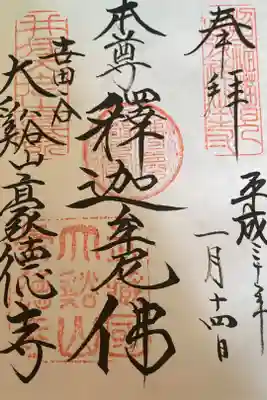 奉拝
平成三十年
一月十四日
本尊
釋迦牟尼佛
世田谷
大谿山豪徳寺